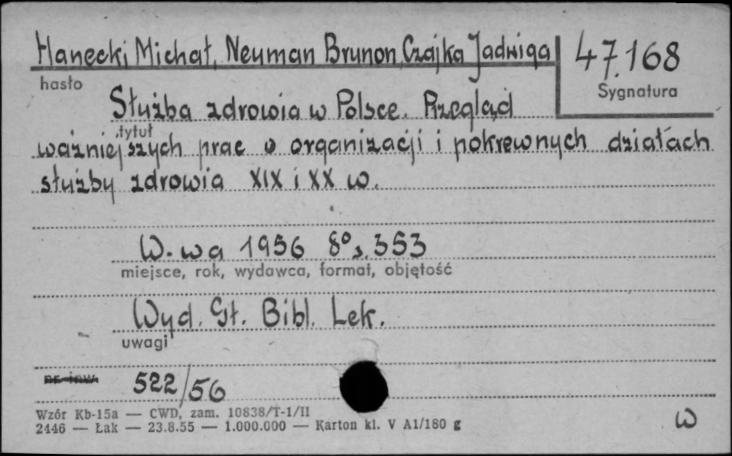 Hanecki Michał, Neuman Brunon, Czajka Jadwiga
47.168
hasło
Sygnatura
Służba zdrowia w Polsce. Przegląd
tytuł
ważniejszych prac o organizacji i pokrewnych działach
służby zdrowia XIX i XX w.
W-wa 1956 8° s. 353
miejsce, rok, wydawca, format, objętość
Wyd. Gł. Bibl. Lek.
uwagi
nr inw. 522/56
Wzór Kb-15a — CWD, zam. 10838/T-1/II
2446 — Łak — 23.8.55 — 1.000.000 — Karton kl. V A1/180 g
W